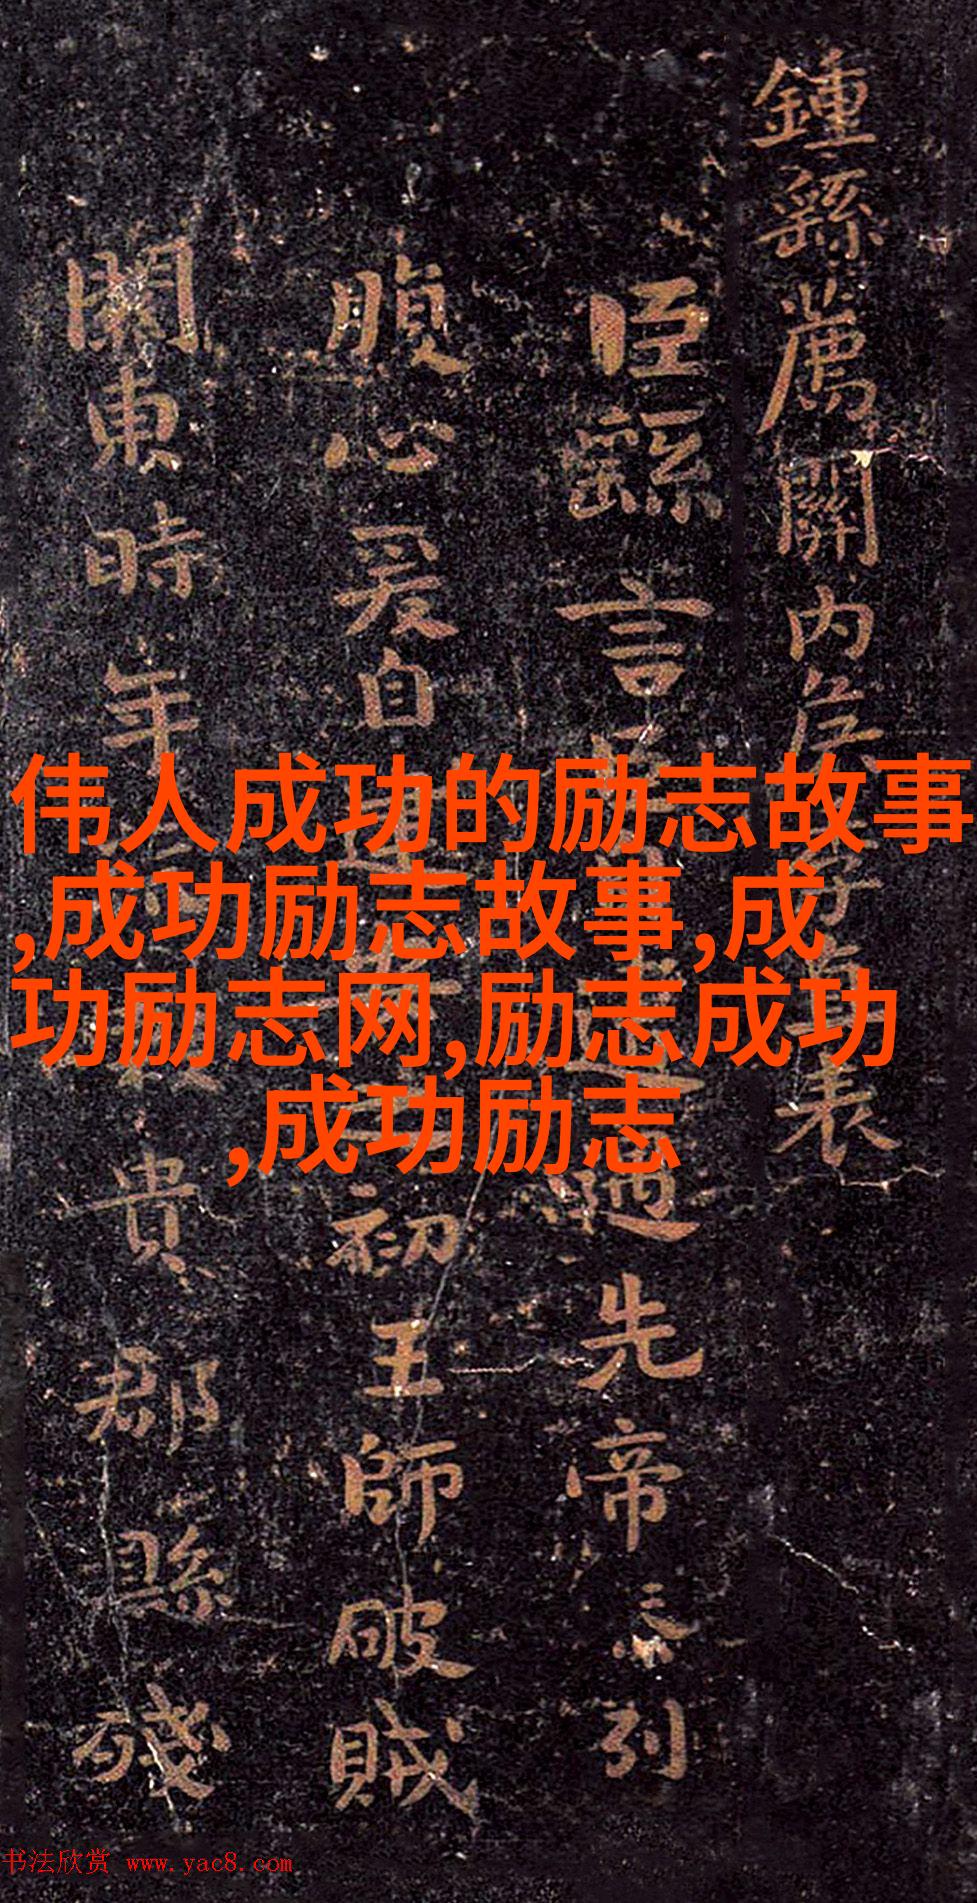 鍾繇薦關內侯季直表
臣繇言臣自遭遇先帝忝列
腹心爰自建安之初王師破賊
關東時年荒穀貴郡縣殘
伟人成功的励志故事
,成功励志故事,成
功励志网,励志成功
,成功励志
书法欣赏 www.yac8.com